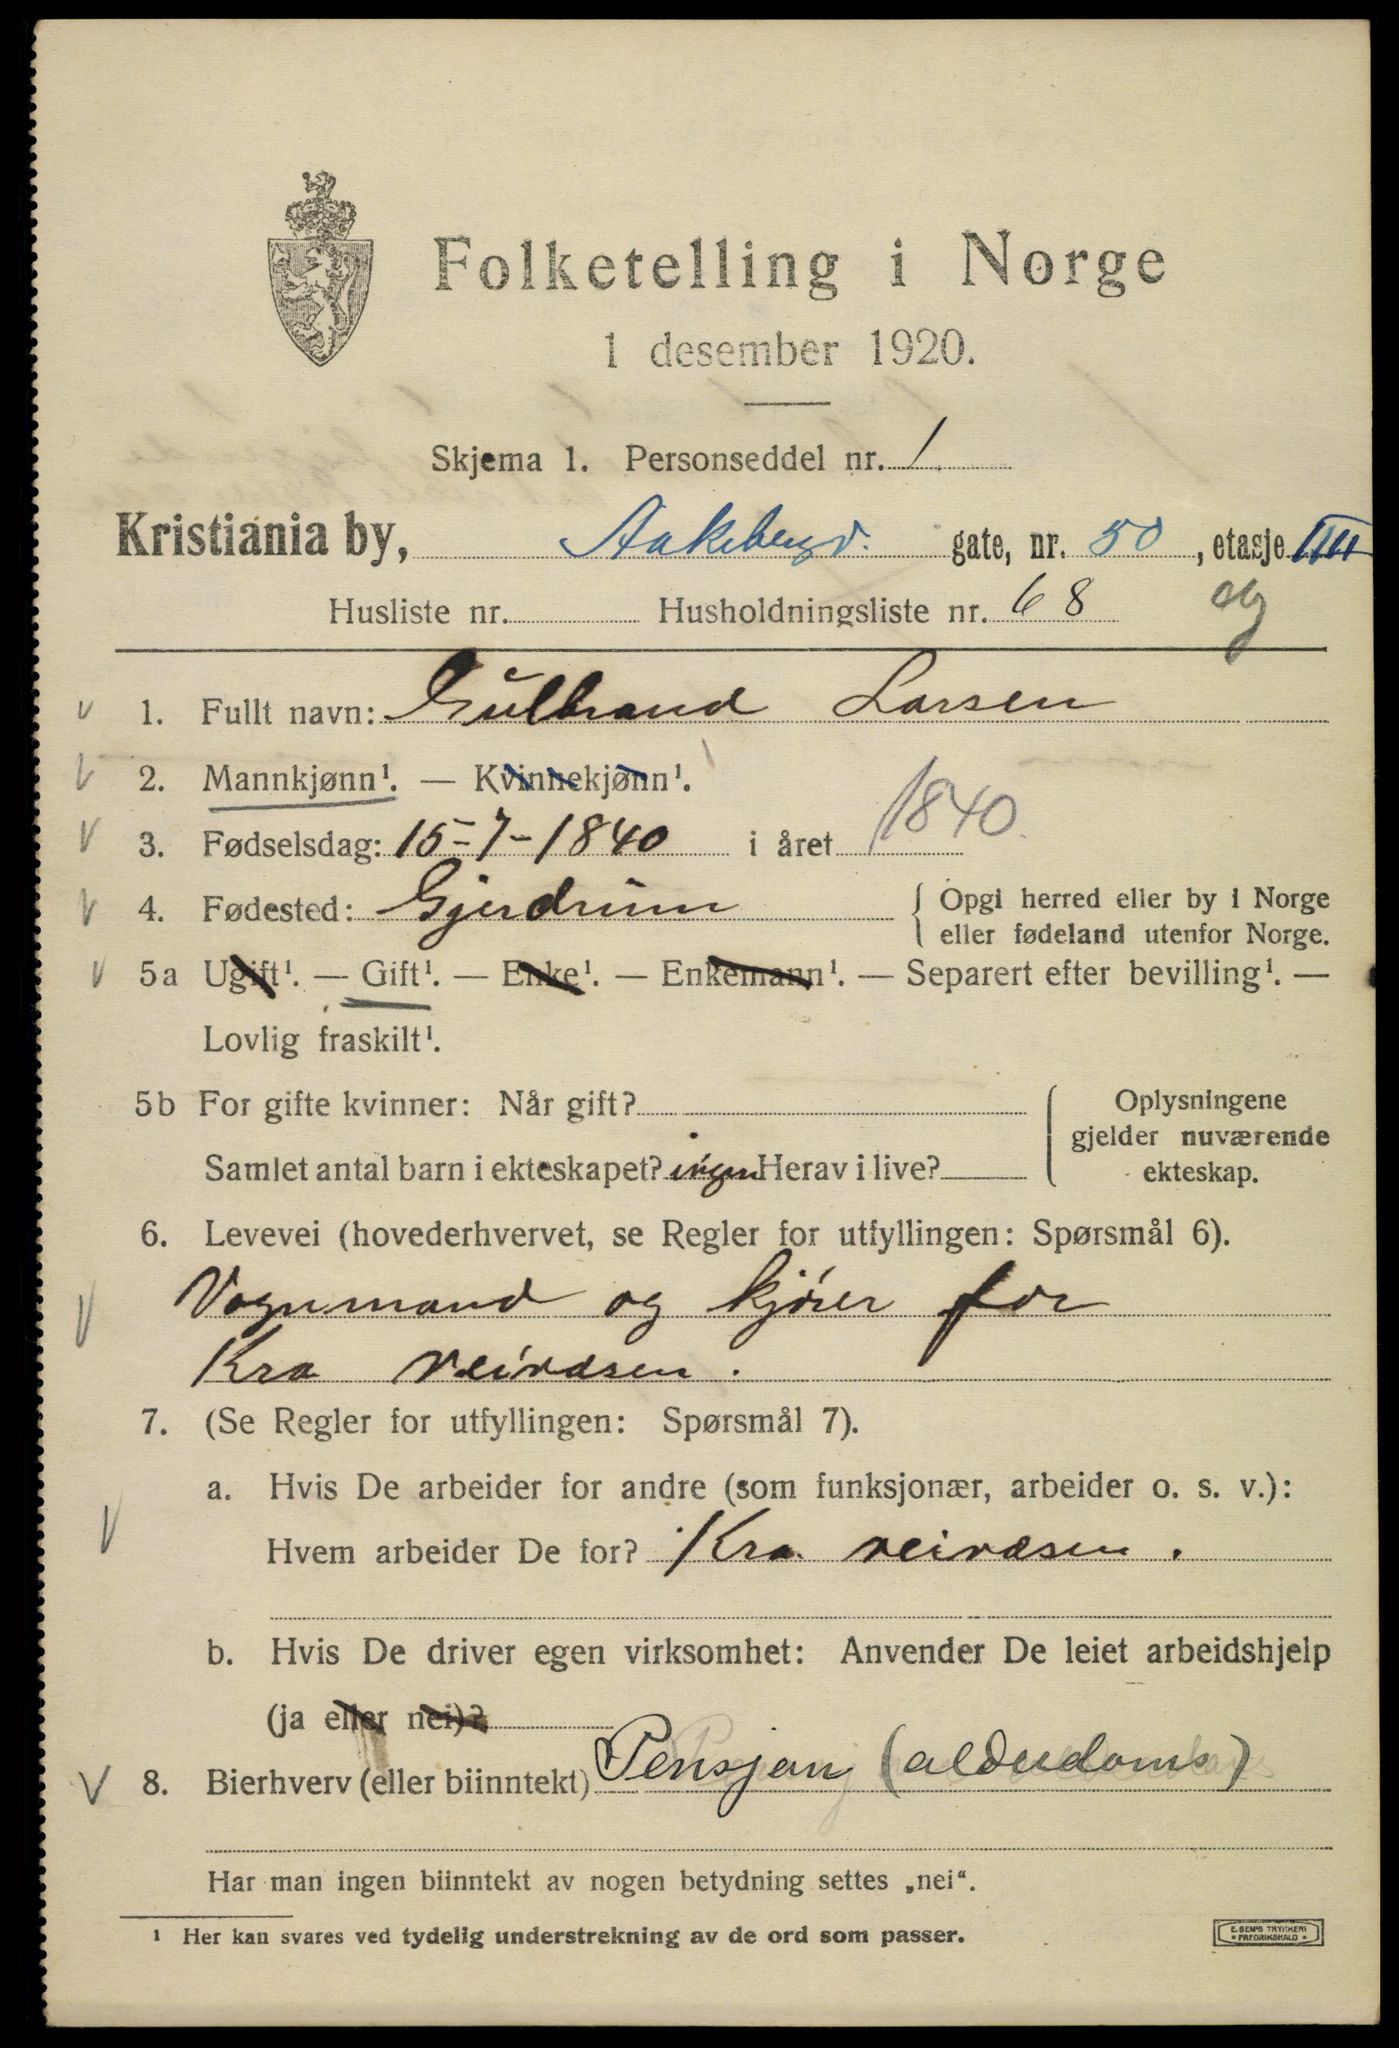 Folketelling i Norge
1 desember 1920.
Skjema 1. Personseddel nr. 1.
Kristiania by, Aakebergv. gate, nr. 50, etasje III
Husliste nr. Husholdningsliste nr. 68
1. Fullt navn: Gulbrand Larsen
2. Mannkjønn¹. — Kvinnekjønn¹.
3. Fødselsdag: 15-7-1840 i året 1840.
4. Fødested: Gjerdrum { Opgi herred eller by i Norge
eller fødeland utenfor Norge.
5a Ugift¹. — Gift¹. — Enke¹. — Enkemann¹. — Separert efter bevilling¹. —
Lovlig fraskilt¹.
5b For gifte kvinner: Når gift?
Samlet antal barn i ekteskapet? ingen Herav i live?
{ Oplysningene
gjelder nuværende
ekteskap.
6. Levevei (hovederhvervet, se Regler for utfyllingen: Spørsmål 6).
Vognmand og kjører for
Kra veivæsen.
7. (Se Regler for utfyllingen: Spørsmål 7).
a. Hvis De arbeider for andre (som funksjonær, arbeider o. s. v.):
Hvem arbeider De for? Kra. veivæsen.
b. Hvis De driver egen virksomhet: Anvender De leiet arbeidshjelp
(ja eller nei)?
8. Bierhverv (eller biinntekt) Pensjon (alderdoms)
Har man ingen biinntekt av nogen betydning settes „nei“.
¹ Her kan svares ved tydelig understrekning av de ord som passer.
E. SEM'S TRYKKERI
* FREDRIKSHALD *